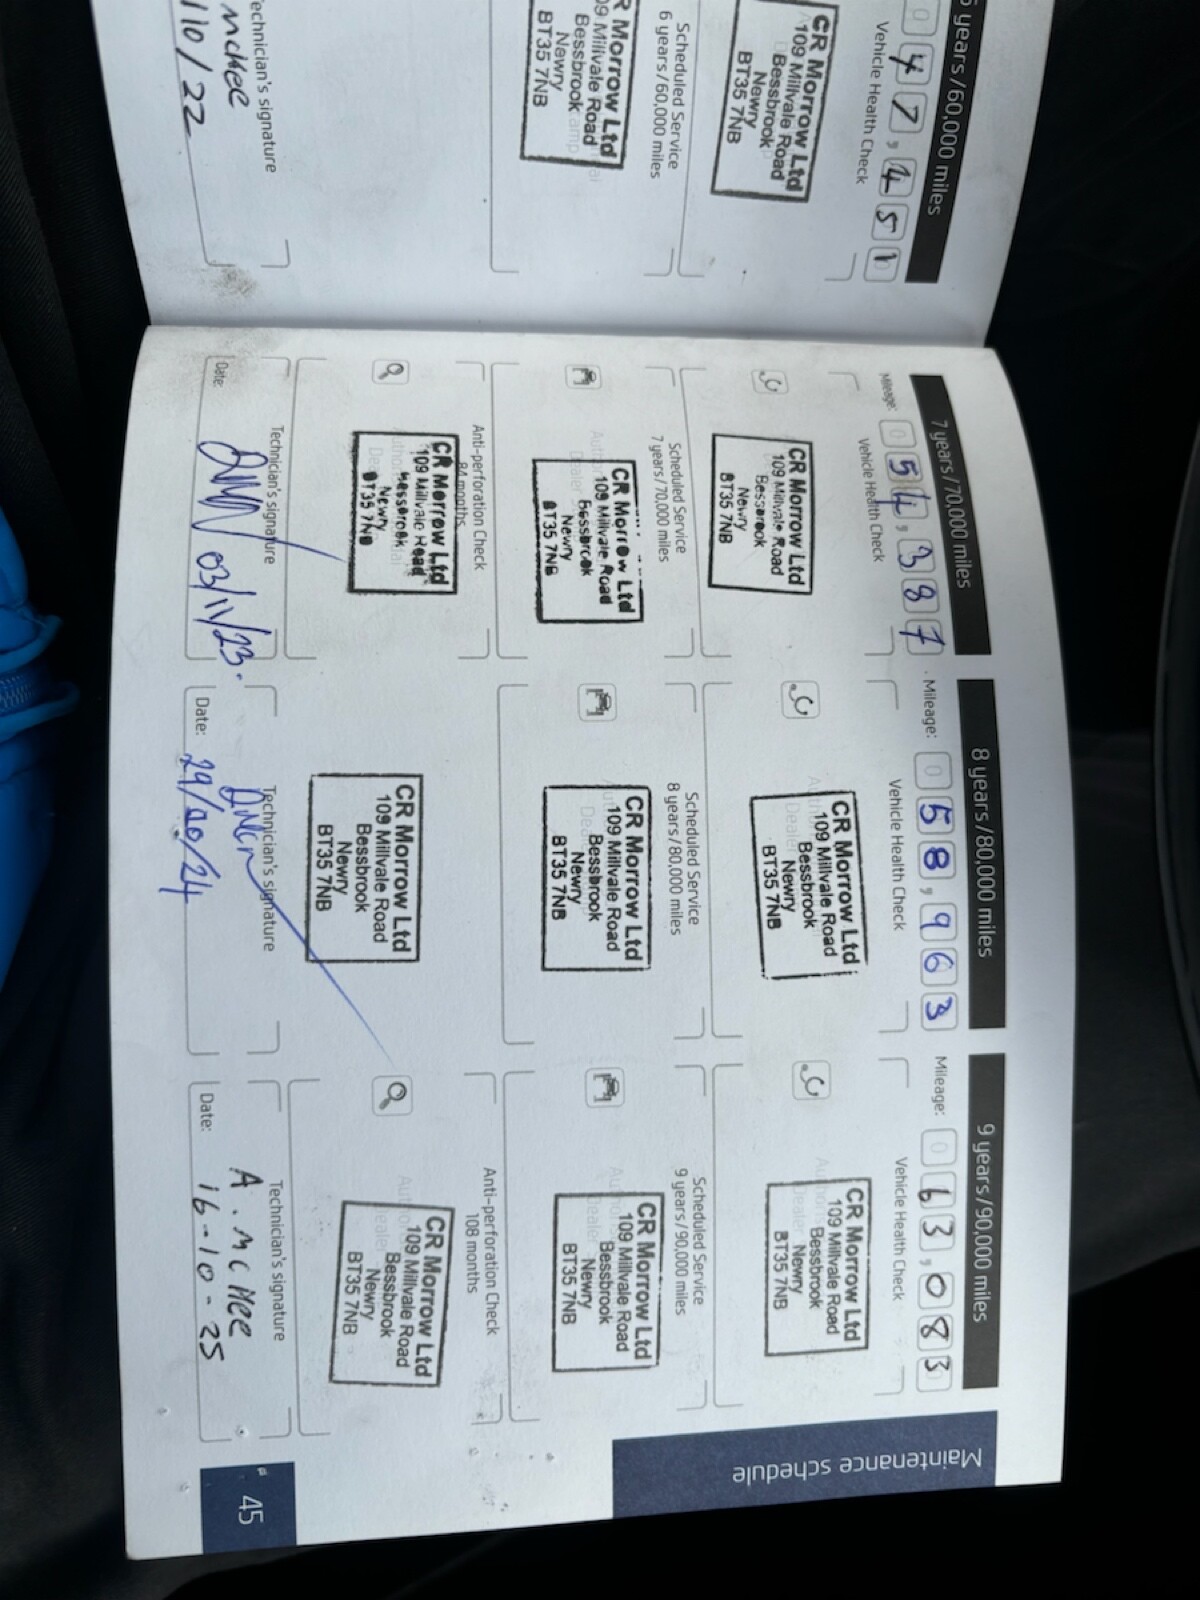 years/60,000 miles
0 4 7 , 4 5 1
Vehicle Health Check
CR Morrow Ltd
109 Millvale Road
Bessbrook
Newry
BT35 7NB
Scheduled Service
6 years/60,000 miles
R Morrow Ltd
09 Millvale Road
Bessbrook
Newry
BT35 7NB
echnician's signature
McHee
/10/22
7 years/70,000 miles
Mileage: 0 5 4 , 3 8 7
Vehicle Health Check
CR Morrow Ltd
109 Millvale Road
Bessbrook
Newry
BT35 7NB
Scheduled Service
7 years/70,000 miles
CR Morrow Ltd
109 Millvale Road
Bessbrook
Newry
BT35 7NB
Anti-perforation Check
84 months
CR Morrow Ltd
109 Millvale Road
Bessbrook
Newry
BT35 7NB
Technician's signature
Date: 03/11/23.
8 years/80,000 miles
Mileage: 0 5 8 , 9 6 3
Vehicle Health Check
CR Morrow Ltd
109 Millvale Road
Bessbrook
Newry
BT35 7NB
Scheduled Service
8 years/80,000 miles
CR Morrow Ltd
109 Millvale Road
Bessbrook
Newry
BT35 7NB
CR Morrow Ltd
109 Millvale Road
Bessbrook
Newry
BT35 7NB
Technician's signature
Date: 29/10/24
9 years/90,000 miles
Mileage: 0 6 3 , 0 8 3
Vehicle Health Check
CR Morrow Ltd
109 Millvale Road
Bessbrook
Newry
BT35 7NB
Scheduled Service
9 years/90,000 miles
CR Morrow Ltd
109 Millvale Road
Bessbrook
Newry
BT35 7NB
Anti-perforation Check
108 months
CR Morrow Ltd
109 Millvale Road
Bessbrook
Newry
BT35 7NB
Technician's signature
A. McHee
Date: 16-10-25
Maintenance schedule
45